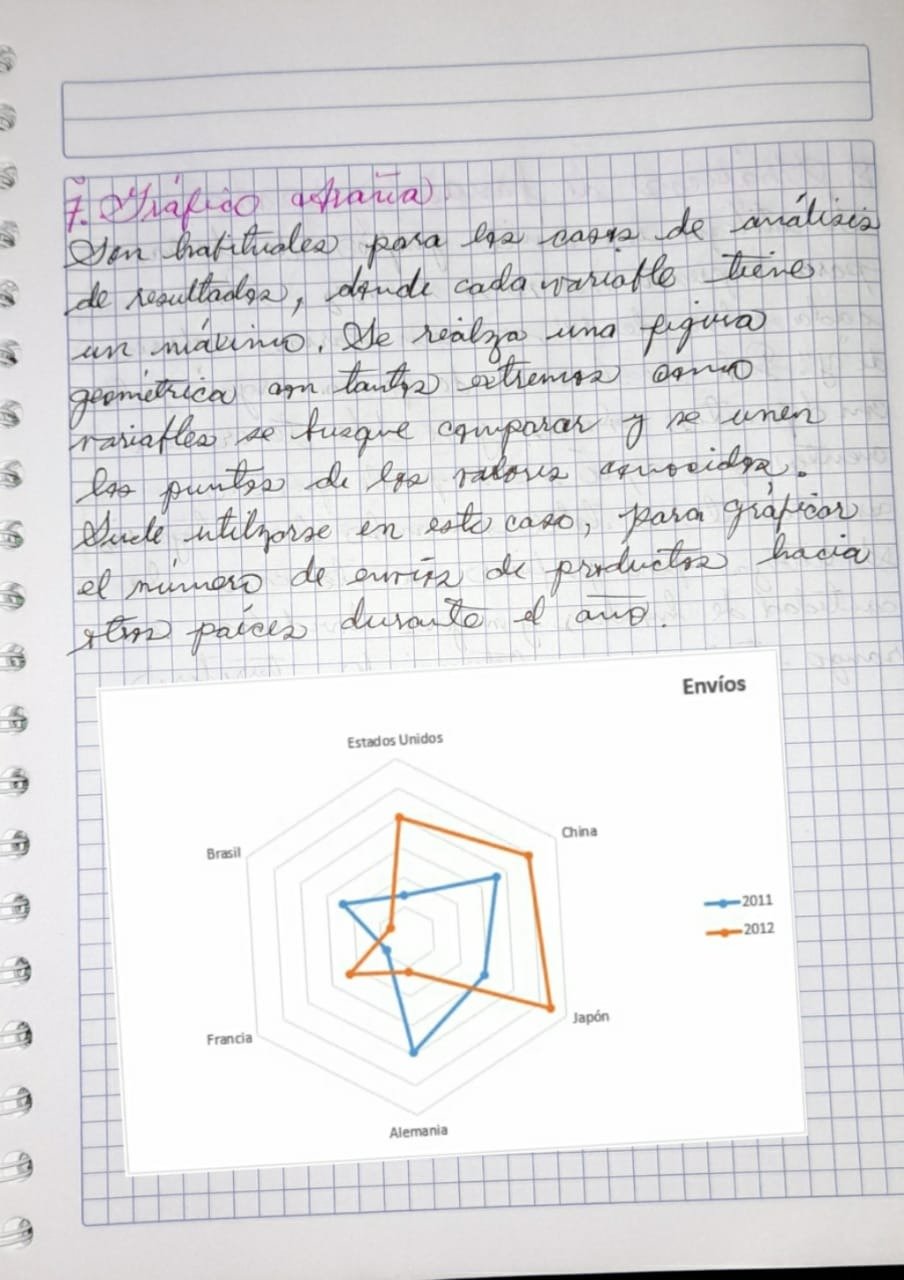 7. Gráfico araña
Son habituales para los casos de análisis
de resultados, donde cada variable tiene
un máximo. Se realza una figura
geométrica con tantos extremos como
variables se busque comparar y se unen
los puntos de los valores conocidos.
Suele utilizarse en este caso, para gráficar
el número de envíos de productos hacia
otros países durante el año.
Envíos
Estados Unidos
China
Brasil
2011
2012
Japón
Francia
Alemania